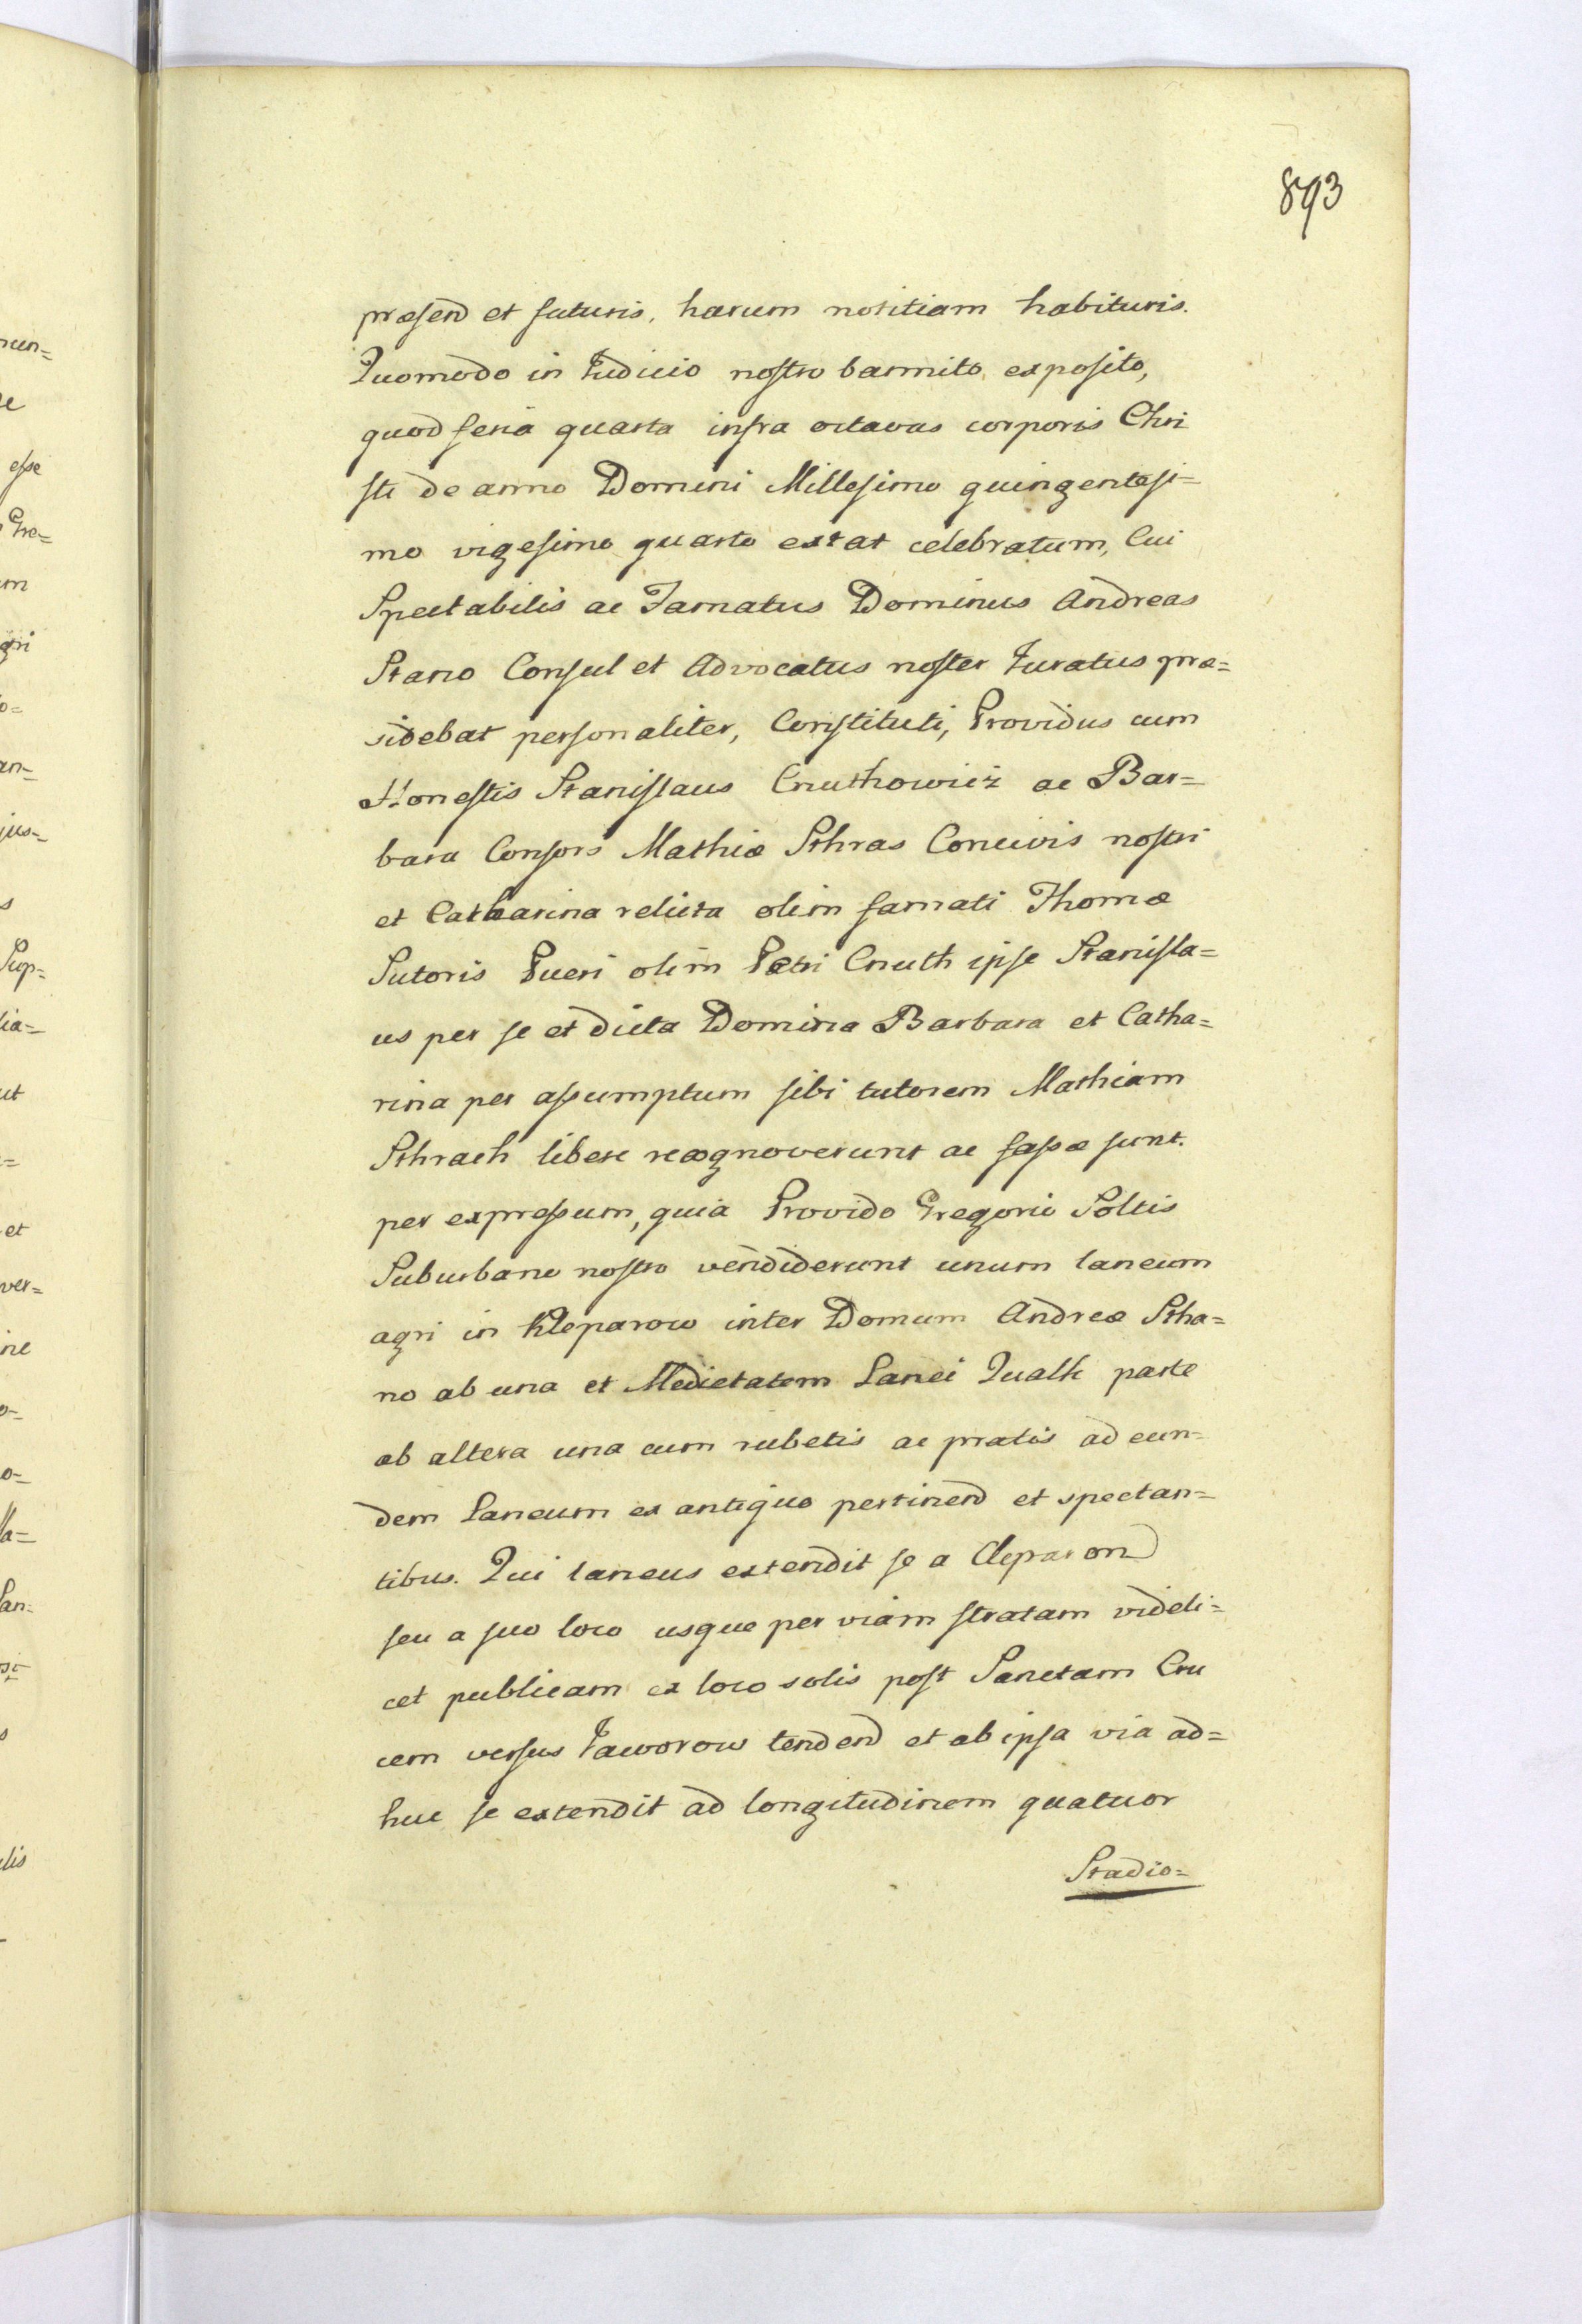 893
præsend et futuris, harum notitiam habituris.
Quomodo in Judicio nostro bannito exposito,
quod feria quarta infra octavas corporis Chri
sti de anno Domini Millesimo quingentesi=
mo vigesimo quarto extat celebratum, Cui
Spectabilis ac Famatus Dominus Andreas
Stano Consul et Advocatus noster Juratus præ=
sidebat personaliter, Constituti, Providus cum
Honestis Stanislaus Cnuthowicz ac Bar=
bara Consors Mathiæ Sthras Concivis nostri
et Catharina relicta olim famati Thomæ
Sutoris Pueri olim Petri Cnuth ipse Stanisla=
us per se et dicta Domina Barbara et Catha=
rina per assumptum sibi tutorem Mathiam
Sthrach libere recognoverunt ac fassæ sunt.
per expressum, quia Provido Gregorio Soltis
Suburbano nostro vendiderunt unum laneum
agri in Kleparow inter Domum Andreæ Stha=
no ab una et Medietatem Lanei Qualh parte
ab altera una cum rubetis ac pratis ad eun=
dem Laneum ex antiquo pertinend et spectan=
tibus. Qui laneus extendit se a Cleparon
seu a suo loco usque per viam stratam videli=
cet publicam ex loco solis post Sanctam Cru
cem versus Jaworow tendend et ab ipsa via ad=
huc se extendit ad longitudinem quatuor
Stadio=
nun=
esse
Gre=
um
gri
o=
an=
jus=
s
Sup=
lia=
ut
et
ver=
ne
o=
o=
la=
Lan=
s
lis